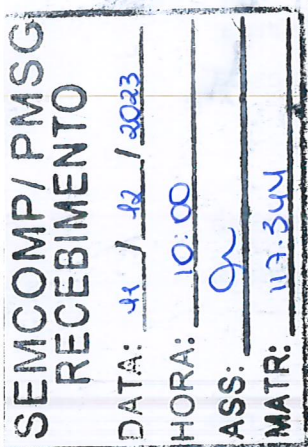 SEMCOMP/PMSG
RECEBIMENTO
DATA: 11 / 12 / 2023
HORA: 10:00
ASS:
MATR: 117.344